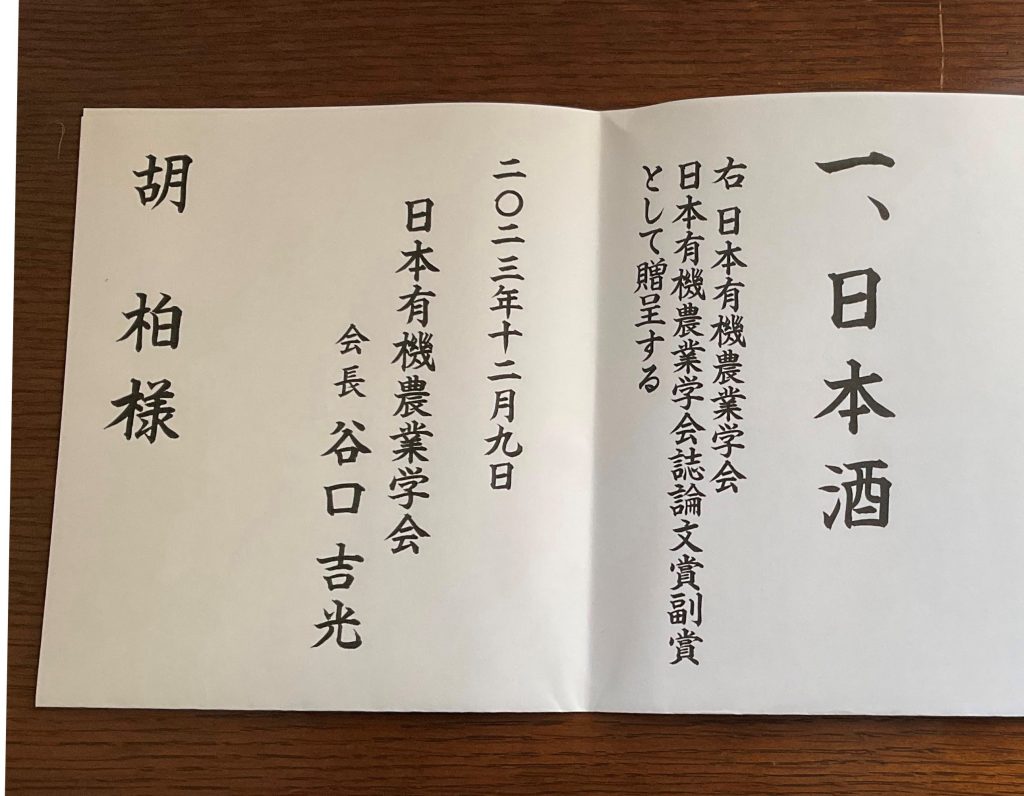 一、日本酒
右 日本有機農業学会
日本有機農業学会誌論文賞副賞
として贈呈する
二〇二三年十二月九日
日本有機農業学会
会長 谷口 吉光
胡 柏様